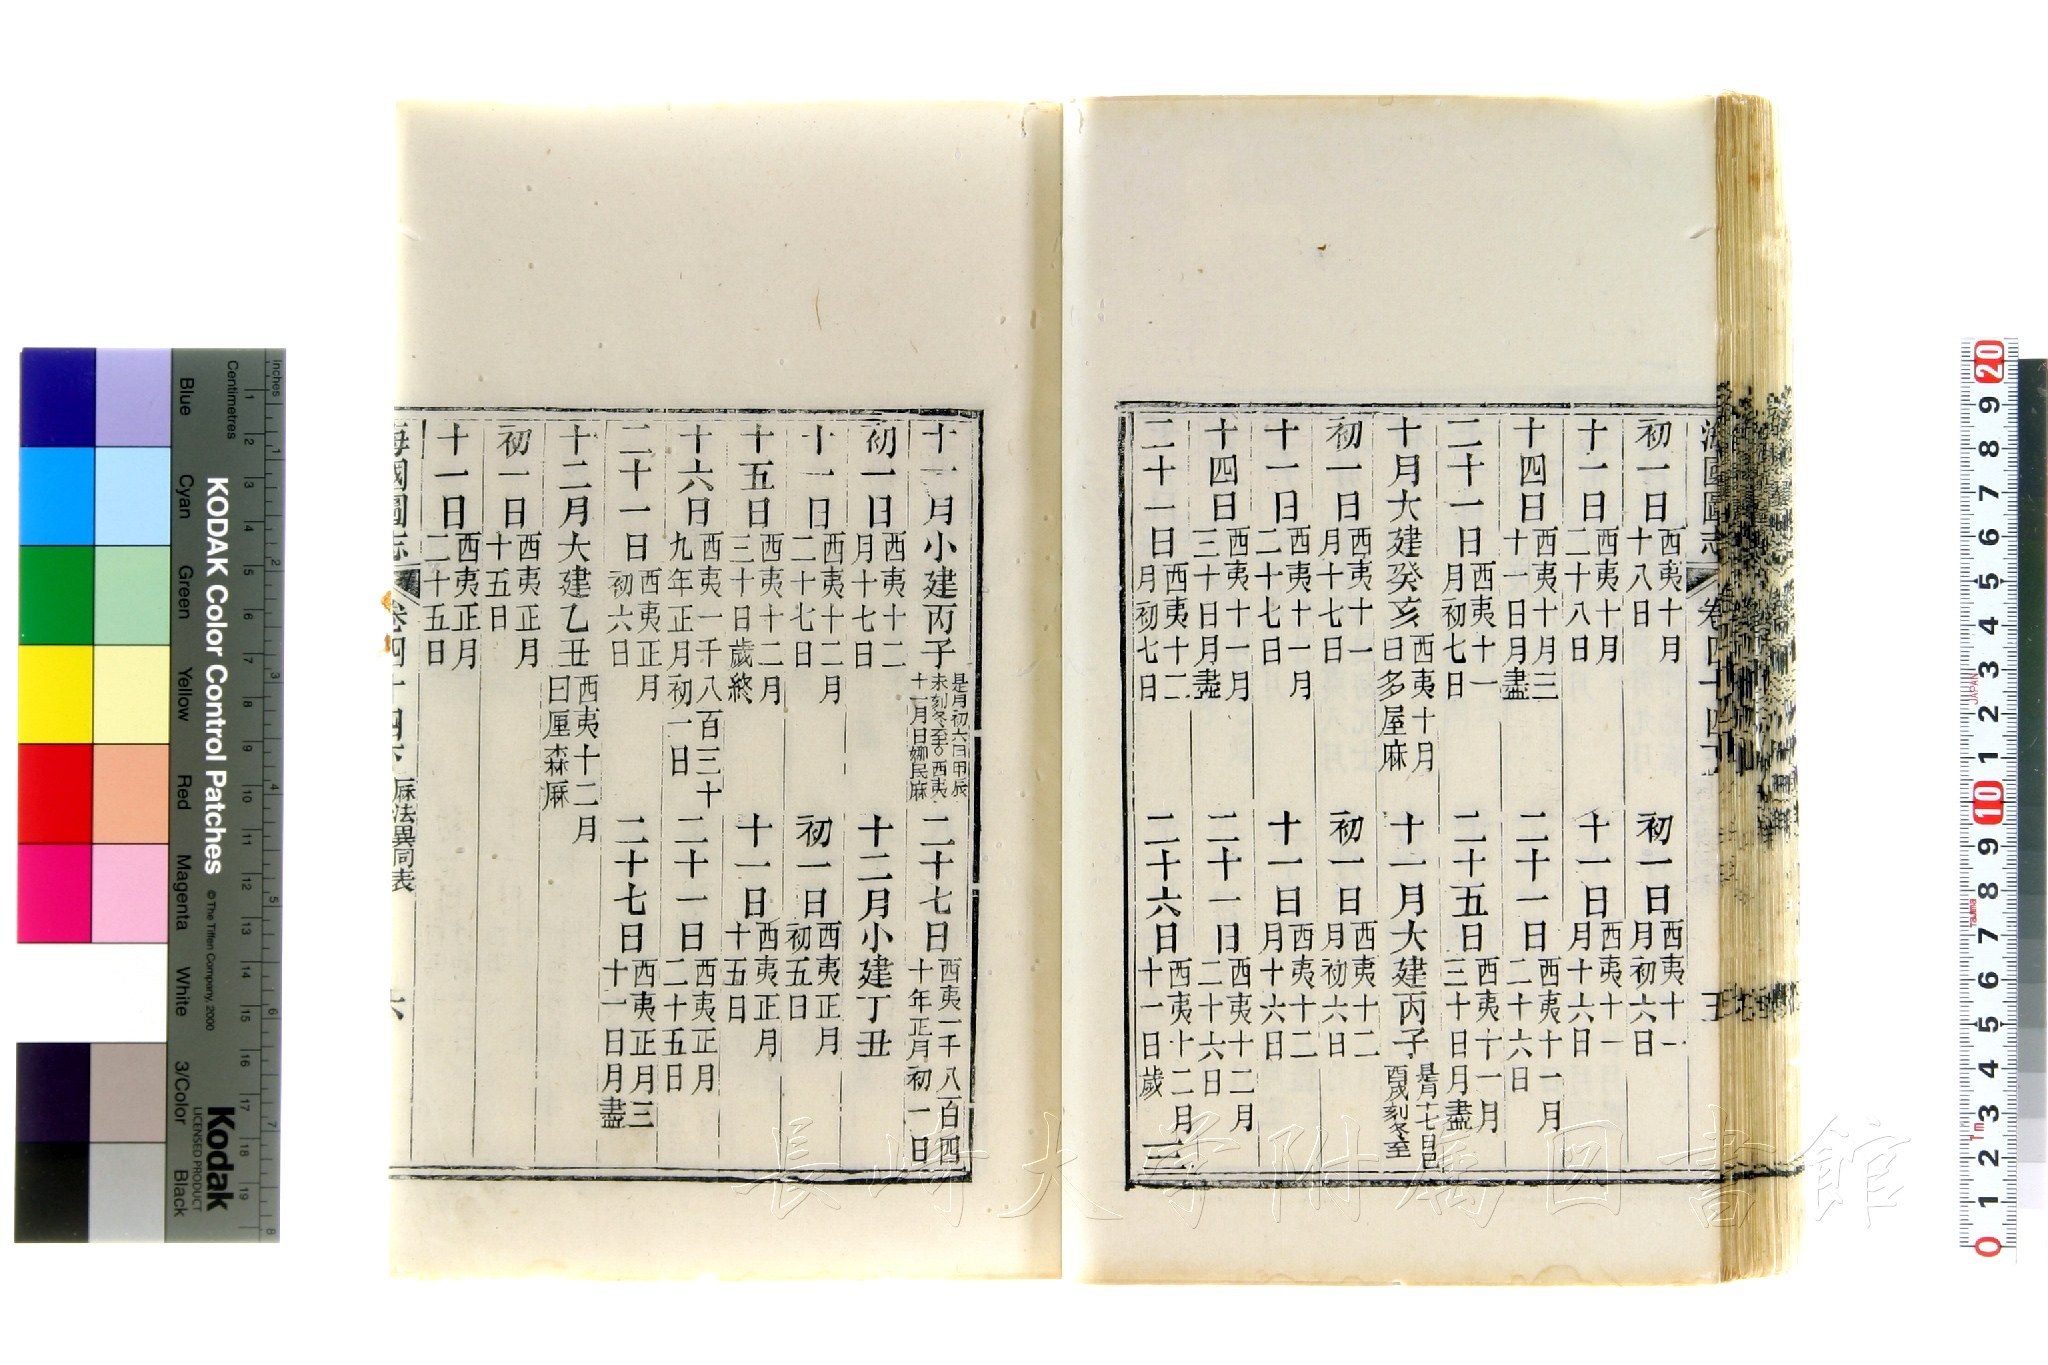 海國圖志 卷四十四下 五
初一日西夷十月十八日 初一日西夷十一月初六日
十一日西夷十月二十八日 十一日西夷十一月十六日
十四日西夷十月三十一日月盡 二十一日西夷十一月二十六日
二十一日西夷十一月初七日 二十五日西夷十一月三十日月盡
十月大建癸亥西夷十月曰多屋麻 十一月大建丙子是月十七日己酉戌刻冬至
初一日西夷十一月十七日 初一日西夷十二月初六日
十一日西夷十一月二十七日 十一日西夷十二月十六日
十四日西夷十一月三十日月盡 二十一日西夷十二月二十六日
二十一日西夷十二月初七日 二十六日西夷十二月三十一日歲
十一月小建丙子是月初六日甲辰未刻冬至○西夷十一月曰娜民麻 二十七日西夷一千八百四十年正月初一日
初一日西夷十二月十七日 十二月小建丁丑
十一日西夷十二月二十七日 初一日西夷正月初五日
十五日西夷十二月三十日歲終 十一日西夷正月十五日
十六日西夷一千八百三十九年正月初一日 二十一日西夷正月二十五日
二十一日西夷正月初六日 二十七日西夷正月三十一日月盡
十二月大建乙丑西夷十二月曰厘森厤
初一日西夷正月十五日
十一日西夷正月二十五日
海國圖志 卷四十四下 厤法異同表 六
長崎大学附属図書館
KODAK Color Control Patches
© The Tiffen Company, 2000
Kodak
LICENSED PRODUCT
Inches
Centimetres
Blue
Cyan
Green
Yellow
Red
Magenta
White
3/Color
Black
1 2 3 4 5 6 7 8
1 2 3 4 5 6 7 8 9 10 11 12 13 14 15 16 17 18 19
20 9 8 7 6 5 4 3 2 1 10 9 8 7 6 5 4 3 2 1 0
JAPAN